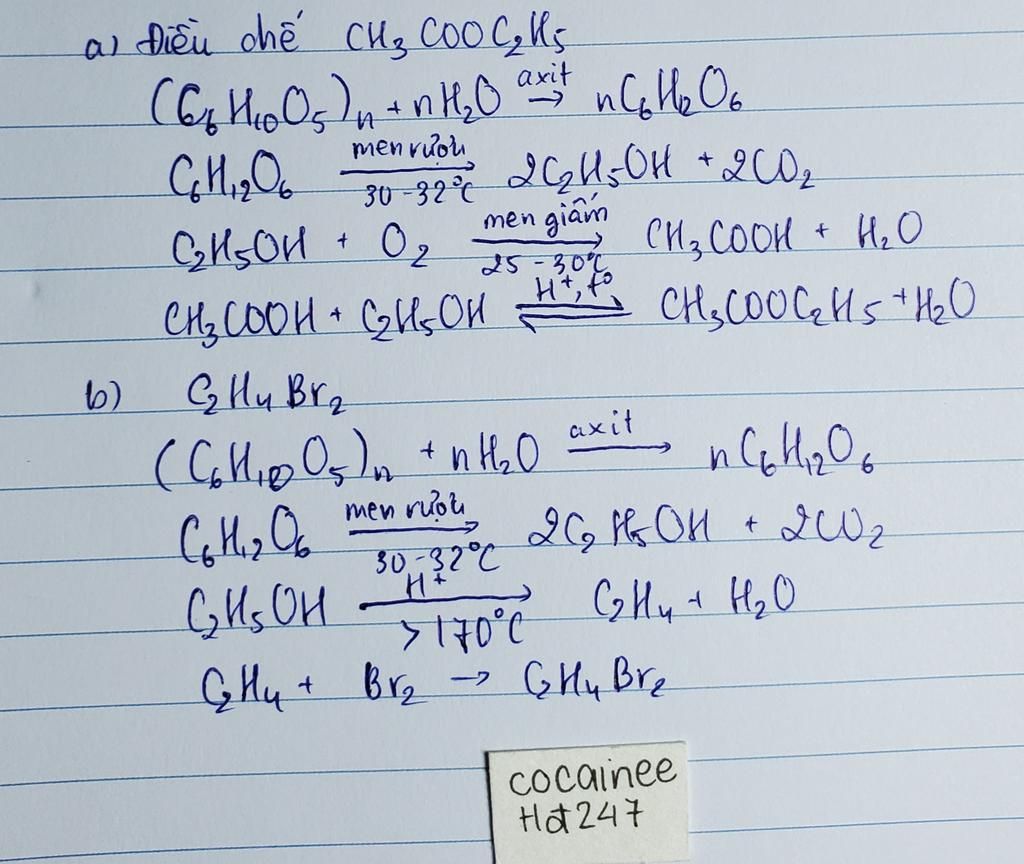 a) Điều chế CH₃COOC₂H₅
(C₆H₁₀O₅)ₙ + nH₂O axit → nC₆H₁₂O₆
C₆H₁₂O₆ men rượu → 30-32°C 2C₂H₅OH + 2CO₂
C₂H₅OH + O₂ men giấm → 25-30°C CH₃COOH + H₂O
CH₃COOH + C₂H₅OH H⁺, t° ⇌ CH₃COOC₂H₅ + H₂O
b) C₂H₄Br₂
(C₆H₁₀O₅)ₙ + nH₂O axit → nC₆H₁₂O₆
C₆H₁₂O₆ men rượu → 30-32°C 2C₂H₅OH + 2CO₂
C₂H₅OH H⁺ → >170°C C₂H₄ + H₂O
C₂H₄ + Br₂ → C₂H₄Br₂
cocainee
Hđ247